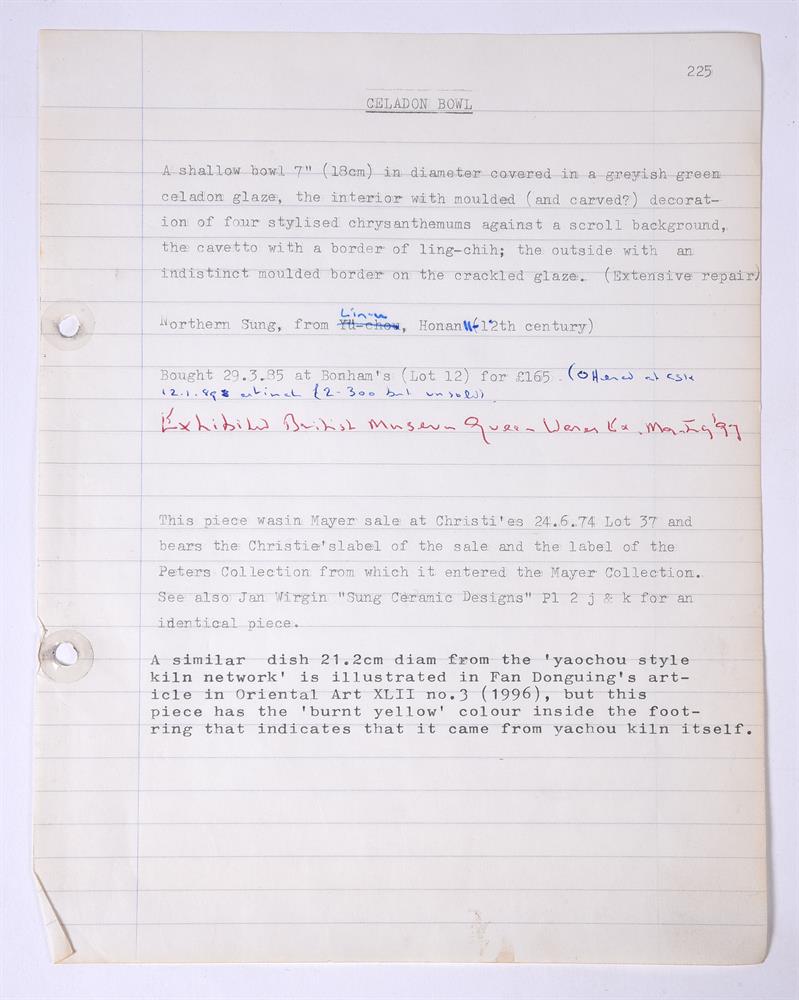 225
CELADON BOWL
A shallow bowl 7" (18cm) in diameter covered in a greyish green
celadon glaze, the interior with moulded (and carved?) decorat-
ion of four stylised chrysanthemums against a scroll background,
the cavetto with a border of ling-chih; the outside with an
indistinct moulded border on the crackled glaze. (Extensive repair)
Lin-ru
Northern Sung, from Yü-chou, Honan 11(12th century)
Bought 29.3.85 at Bonham's (Lot 12) for £165. (Offered at CSK
12.1. est £2-300 but unsold)
Exhibited British Museum Wares Ex. '97
This piece wasin Mayer sale at Christi'es 24.6.74 Lot 37 and
bears the Christie'slabel of the sale and the label of the
Peters Collection from which it entered the Mayer Collection.
See also Jan Wirgin "Sung Ceramic Designs" Pl 2 j & k for an
identical piece.
A similar dish 21.2cm diam from the 'yaochou style
kiln network' is illustrated in Fan Donguing's art-
icle in Oriental Art XLII no.3 (1996), but this
piece has the 'burnt yellow' colour inside the foot-
ring that indicates that it came from yachou kiln itself.